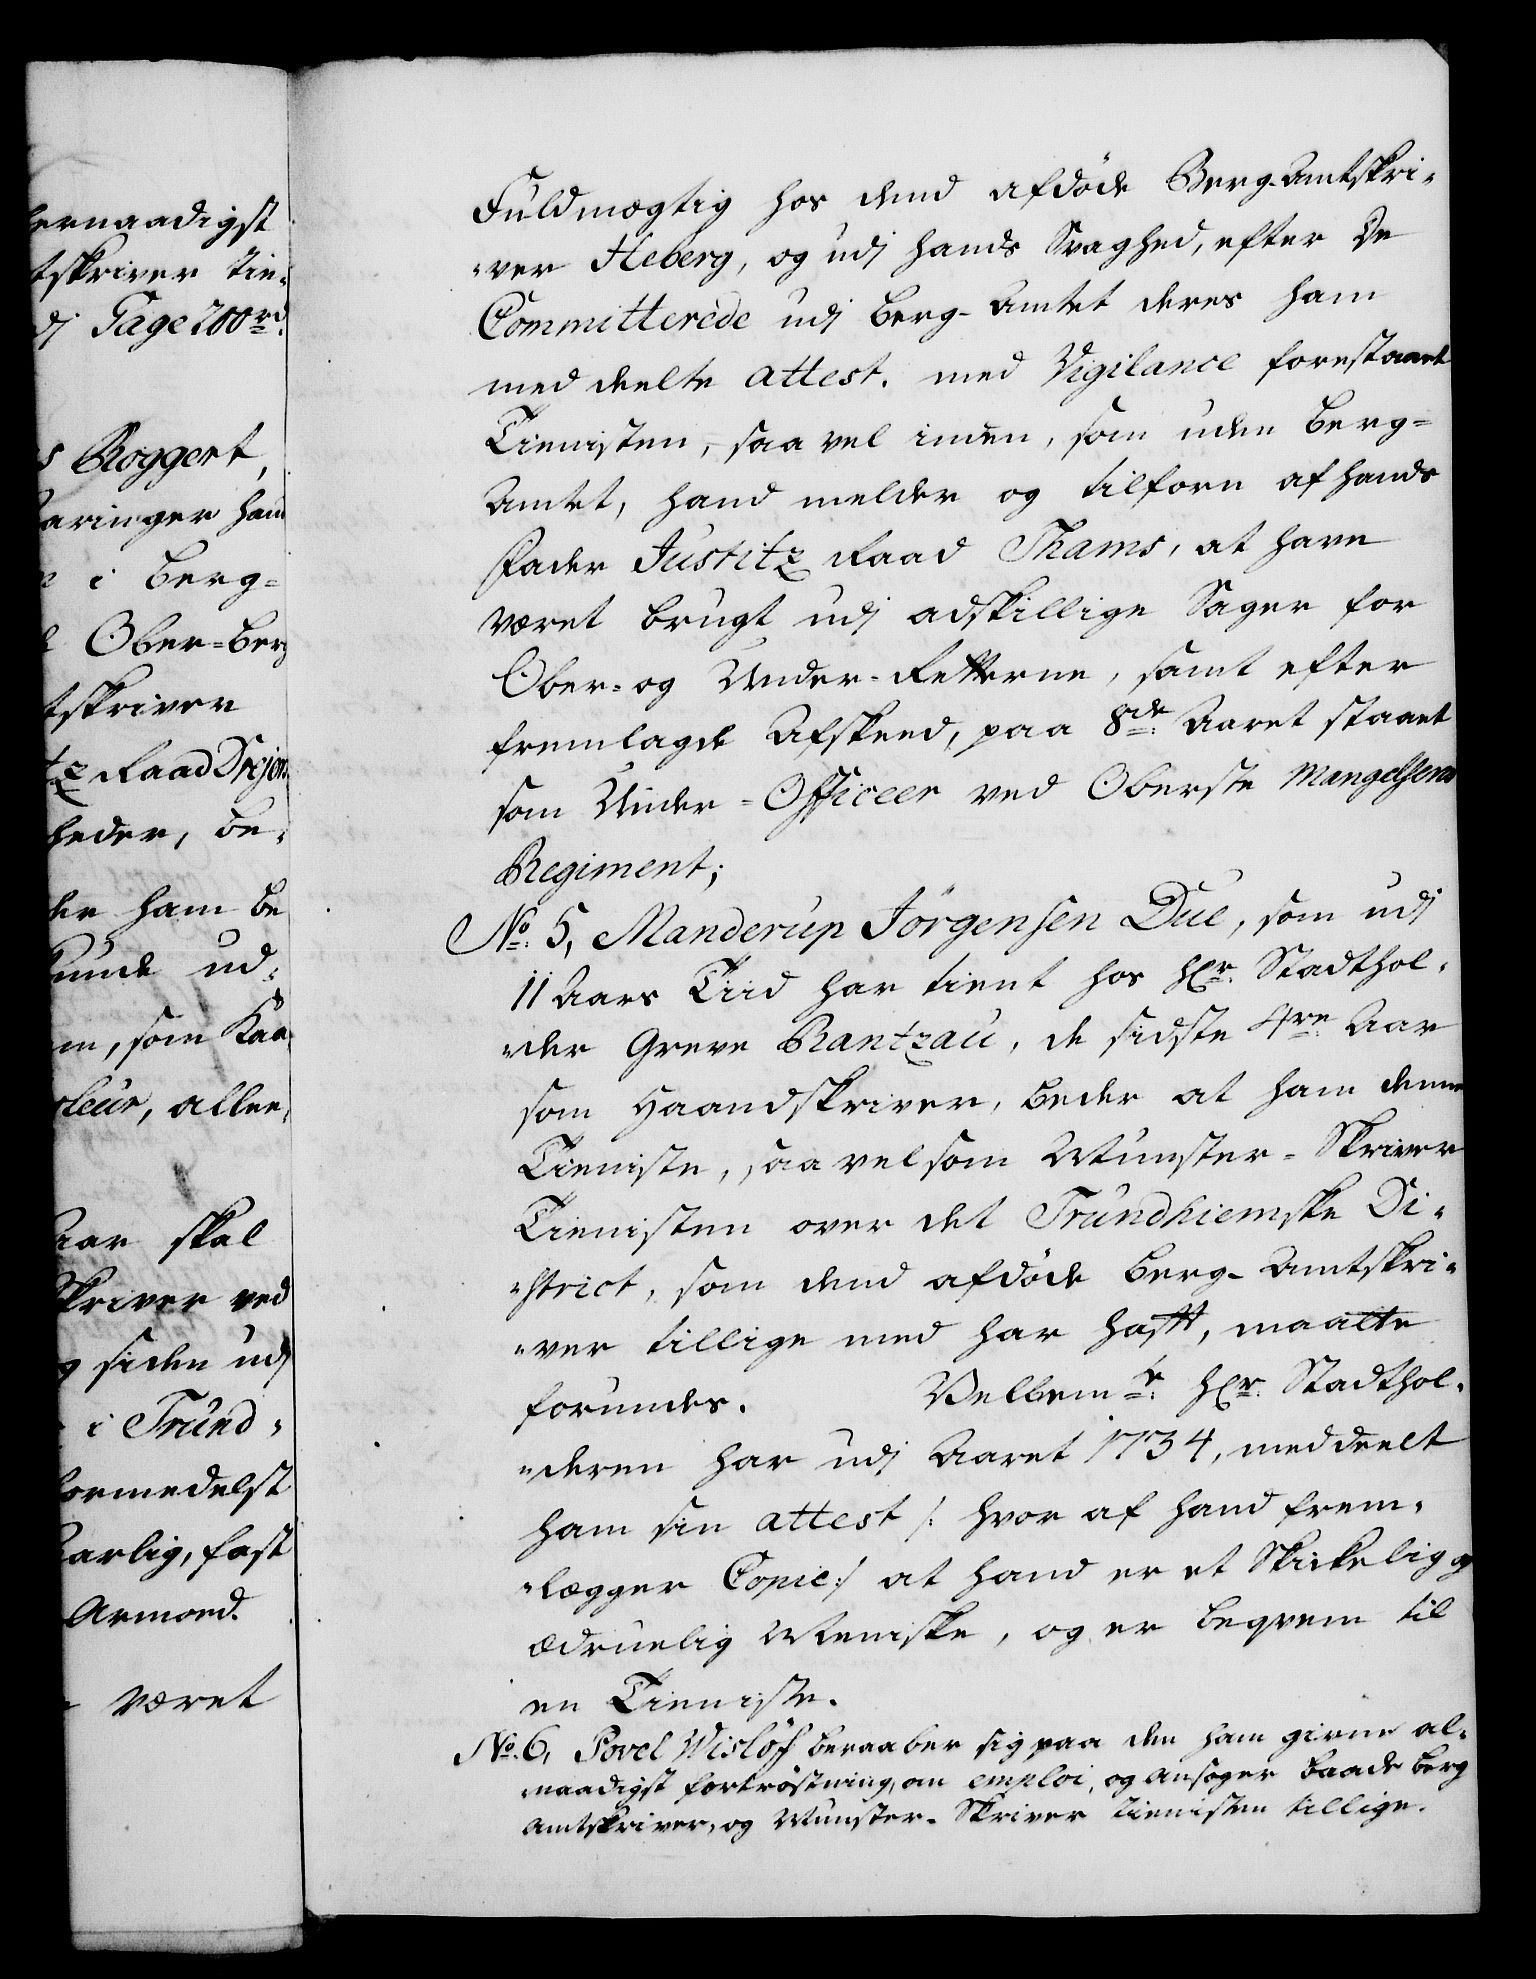 ernaadigst
tskriver Tie-
dj Tage 200rd.
s Roggert,
aringer hand
e i Berg-
Ober-Berg
tskriver
tz Raad Drejer
heder, be-
der ham be
kunde ud-
m, som Kaa
leur, allee,
aar skal
Skriver ved
g siden udj
i Trund-
formedelst
aarlig, fast
Armoed.
været
Fuldmægtig hos dend afdöde Berg-Amtskri-
-ver Heberg, og udj hands Svaghed, efter De
Committerede udj Berg-Amtet deres ham
med deelte attest. med Vigilance forestaaet
Tienisten, saa vel inden, som uden Berg-
Amtet, hand melder og tilforn af hands
Fader Justitz Raad Thams, at have
været brugt udj adskillige Sager for
Ober- og Under-Retterne, samt efter
fremlagde Afskeed, paa 8de Aaret staaet
som Under-Officeer ved Oberste Mangelsens
Regiment;
No. 5, Manderup Jörgensen Due, som udj
11 Aars Tiid har tient hos Hr. Stadthol-
-der Greve Rantzau, de sidste 4re Aar
som Haandskriver, beder at ham denne
Tieniste, saa vel som Munster-Skriver
Tienisten over det Trundhiemske Di-
-strict, som dend afdöde Berg-Amtskri-
-ver tillige med har hafft, maatte
forundes. Velbemte. Hr. Stadthol-
-deren har udj Aaret 1734, meddeelt
ham sin attest /: hvor af hand frem-
-lægger Copie:/ at hand er et Skickelig og
ædruelig Meniske, og er beqvem til
en Tieniste.
No. 6, Povel Wislöf beraaber sig paa den ham givne al-
naadigst fortröstning, om emploi, og ansöger baade Berg
Amtskriver, og Munster-Skriver Tienisten tillige.